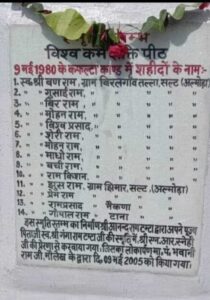 म्भ
विश्वकर्मा शक्ति पीठ
9 मई 1980 के कफल्टा काण्ड में शहीदों के नाम:-
1. स्व. श्री बन राम, ग्राम बिरलगाँव तल्ला, सल्ट (अल्मोड़ा)
2. " गुसाईं राम, " " " "
3. " बिर राम, " " " "
4. " मोहन राम, " " " "
5. " विश्वा प्रसाद, " " " "
6. " सरी राम, " " " "
7. " मोहन राम, " " " "
8. " माधो राम, " " " "
9. " बची राम, " " " "
10. " राम किशन, " " " "
11. " डुस राम, ग्राम झिमार, सल्ट, (अल्मोड़ा)
12. " प्रेम राम, " " " "
13. " रामप्रसाद, " मैकणा " "
14. " गोपाल राम, " टाना " "
इस स्मृति स्तम्भ का निर्माण श्री आनन्द राम टम्टा द्वारा अपने पूज्य
पिता जी स्व. श्री गंगा राम टम्टा जी की स्मृति में श्री एन. आर. स्नेही
जी की प्रेरणा से करवाया गया, जिसका लोकार्पण मा. पू. भवानी
राम जी, गीलेख के द्वारा दि. 09 मई 2005 को किया गया।